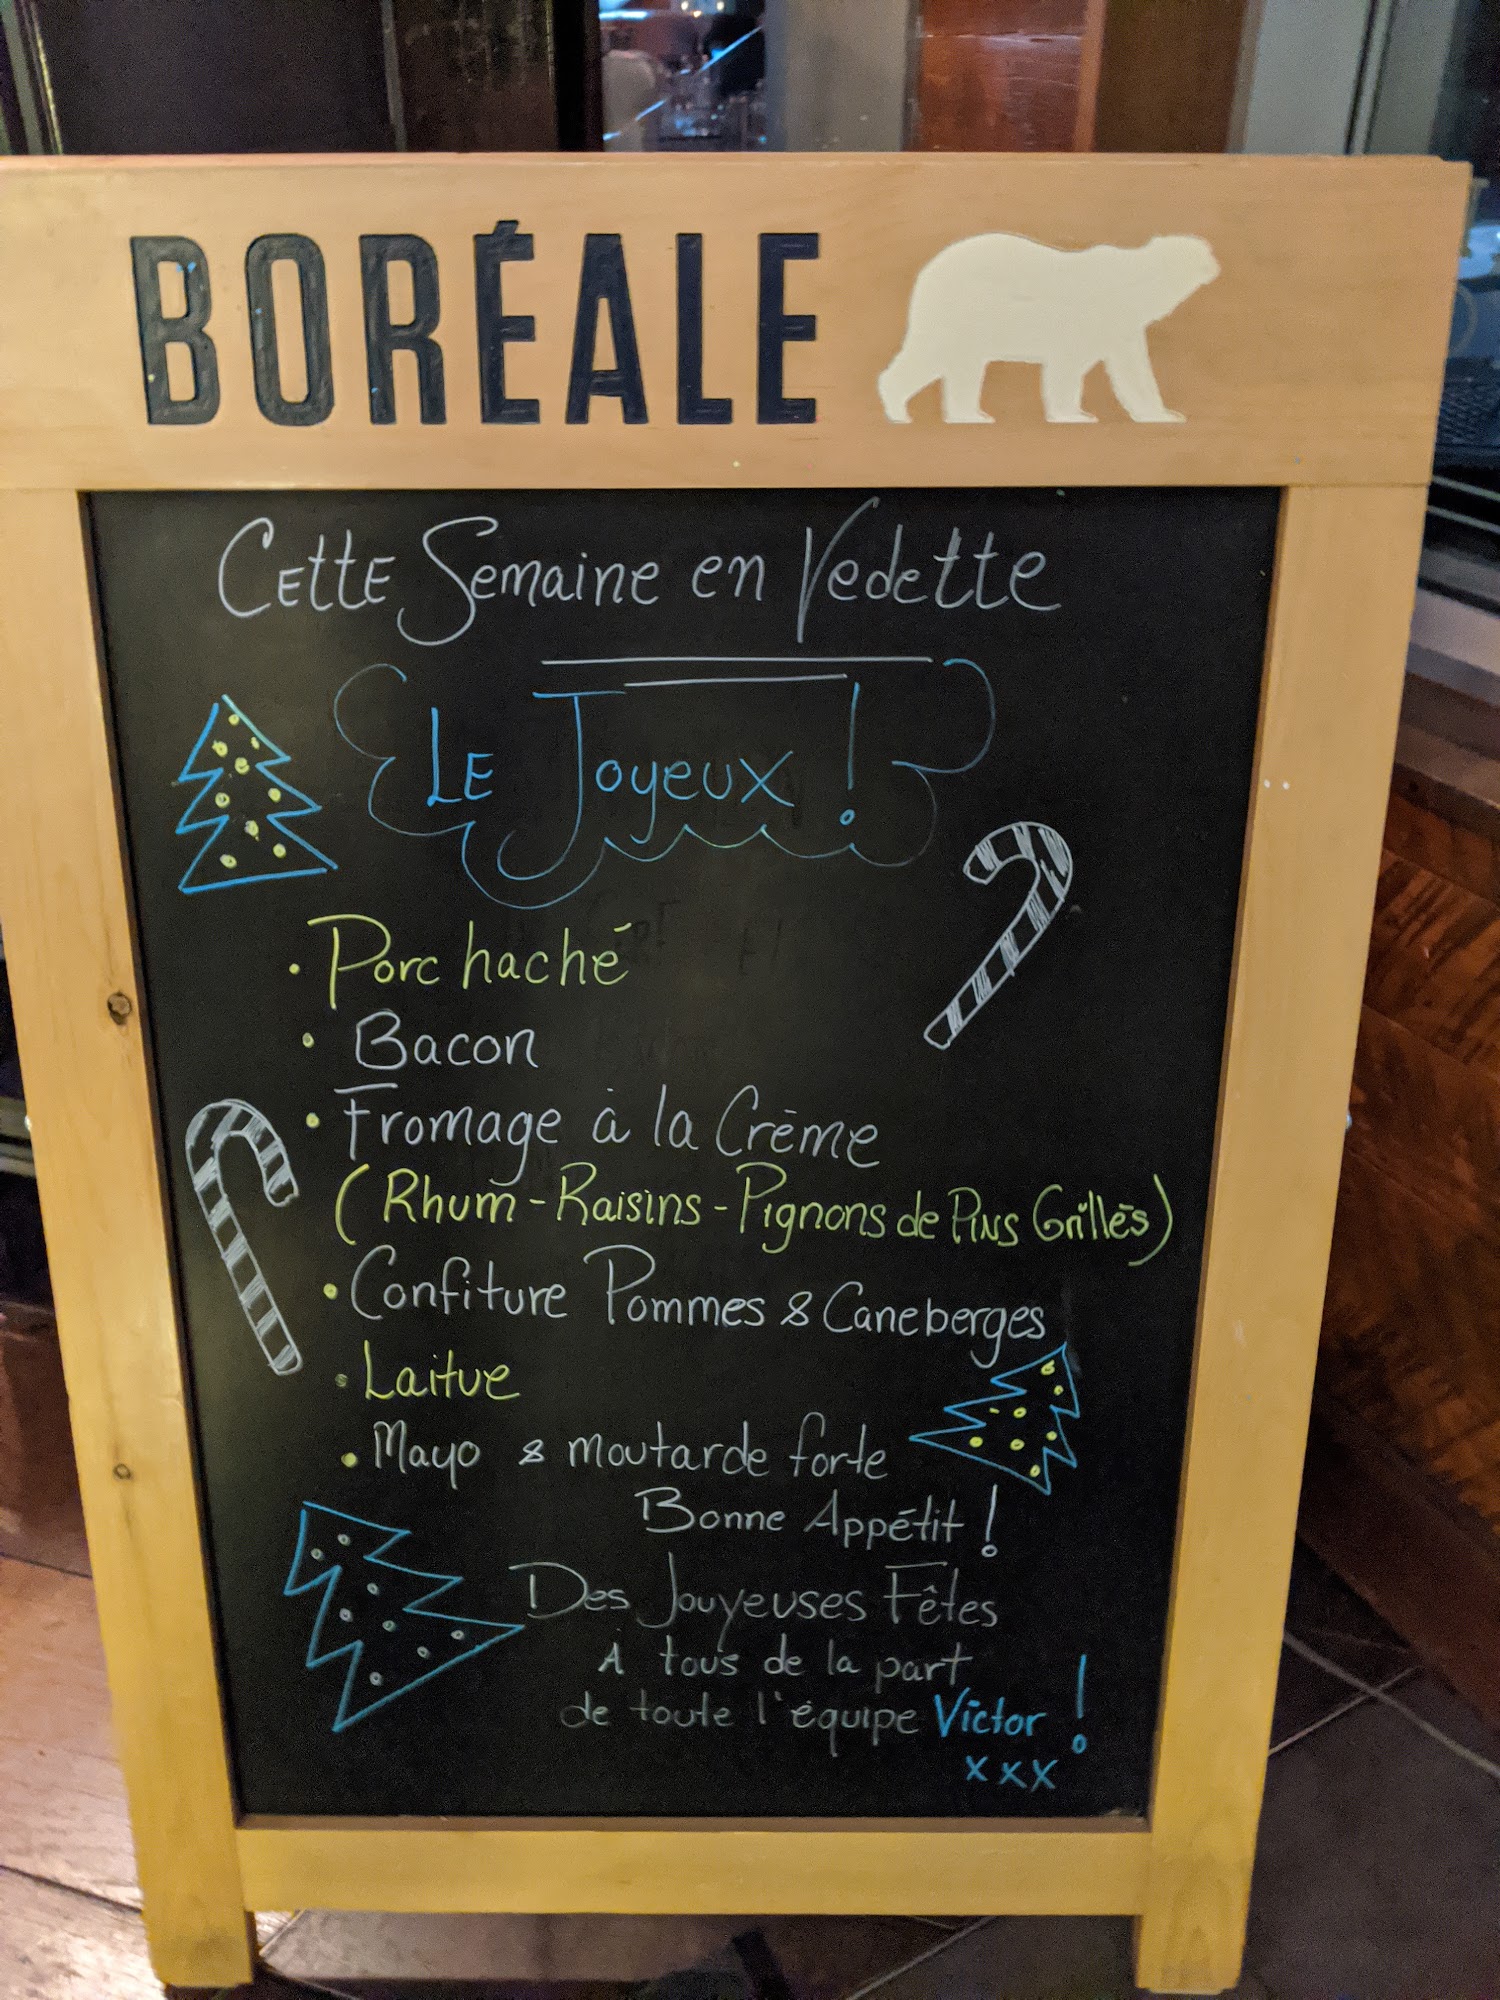 BORÉALE
Cette Semaine en Vedette
Le Joyeux !
• Porc haché
• Bacon
• Fromage à la Crème
(Rhum - Raisins - Pignons de Pins Grillés)
• Confiture Pommes & Caneberges
• Laitue
• Mayo & moutarde forte
Bonne Appétit !
Des Jouyeuses Fêtes
À tous de la part
de toute l'équipe Victor !
xxx